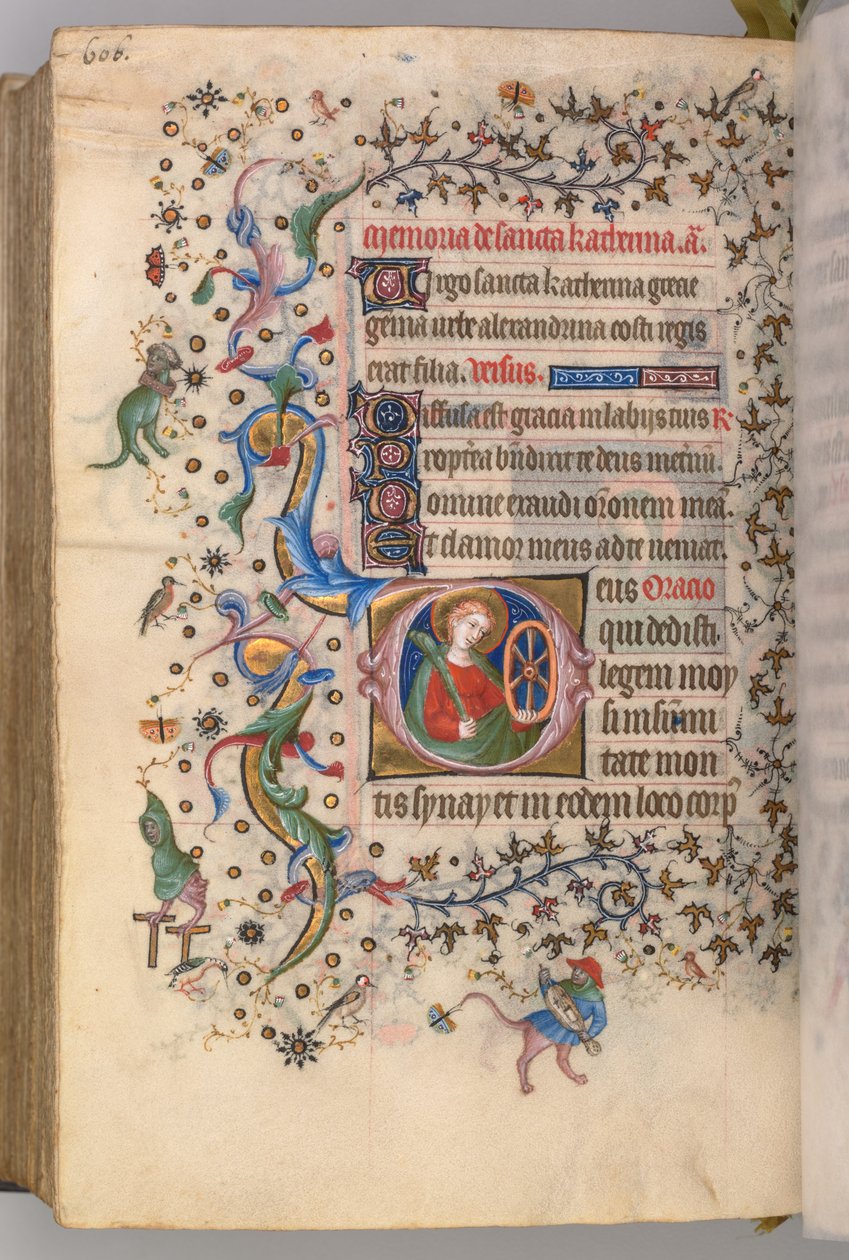 606.
Memoria de sancta katherina. añ.
Virgo sancta katherina grecie
gema urbe alexandrina costi regis
erat filia. Versus.
Diffusa est gracia in labijs tuis R̃.
Propt̾ea bñdixit te deus in et̾nũ.
Domine exaudi or̃onem meã.
Et clamor meus ad te ueniat.
Deus Oracio
qui dedisti
legem moy
si in sũmi
tate mon
tis synay et in eodem loco corpꝰ